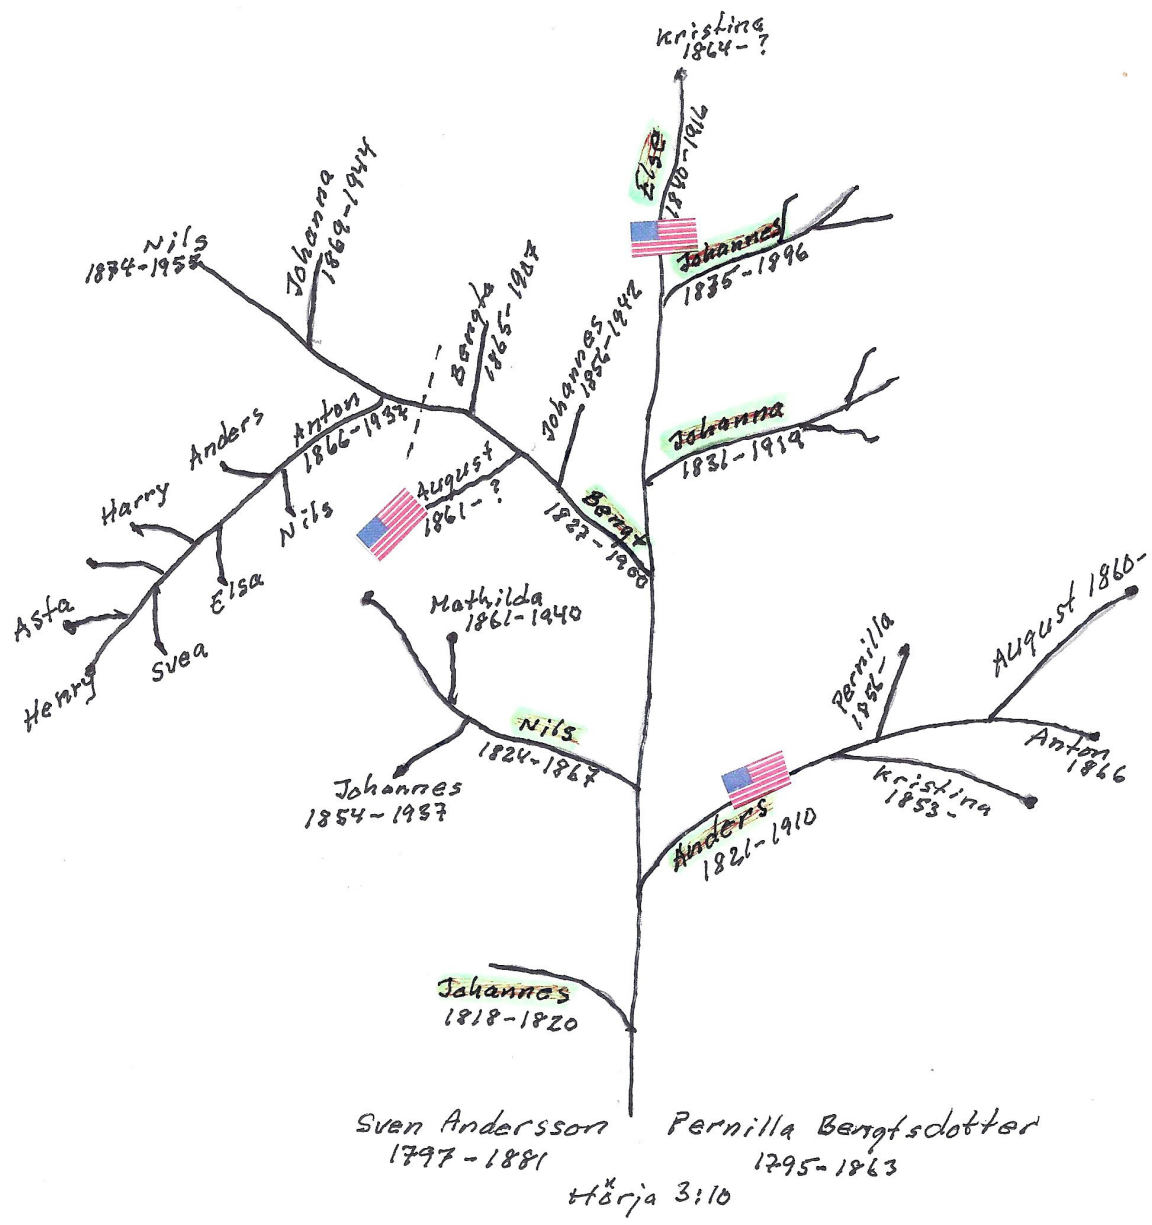 Kristina
1864-?
Else
1840-1916
Johannes
1835-1896
Johanna
1869-1944
Nils
1874-1955
Bengta
1865-1907
Johannes
1856-1942
Johanna
1831-1919
Anton
1866-1937
Anders
August
1861-?
Bengt
1827-1900
Harry
Nils
Elsa
Asta
Svea
Henry
Mathilda
1861-1940
Nils
1824-1867
Johannes
1854-1937
Pernilla
1856-
August 1860-
Anton
1866
Kristina
1853-
Anders
1821-1910
Johannes
1818-1820
Sven Andersson
1797-1881
Pernilla Bengtsdotter
1795-1863
Hörja 3:10